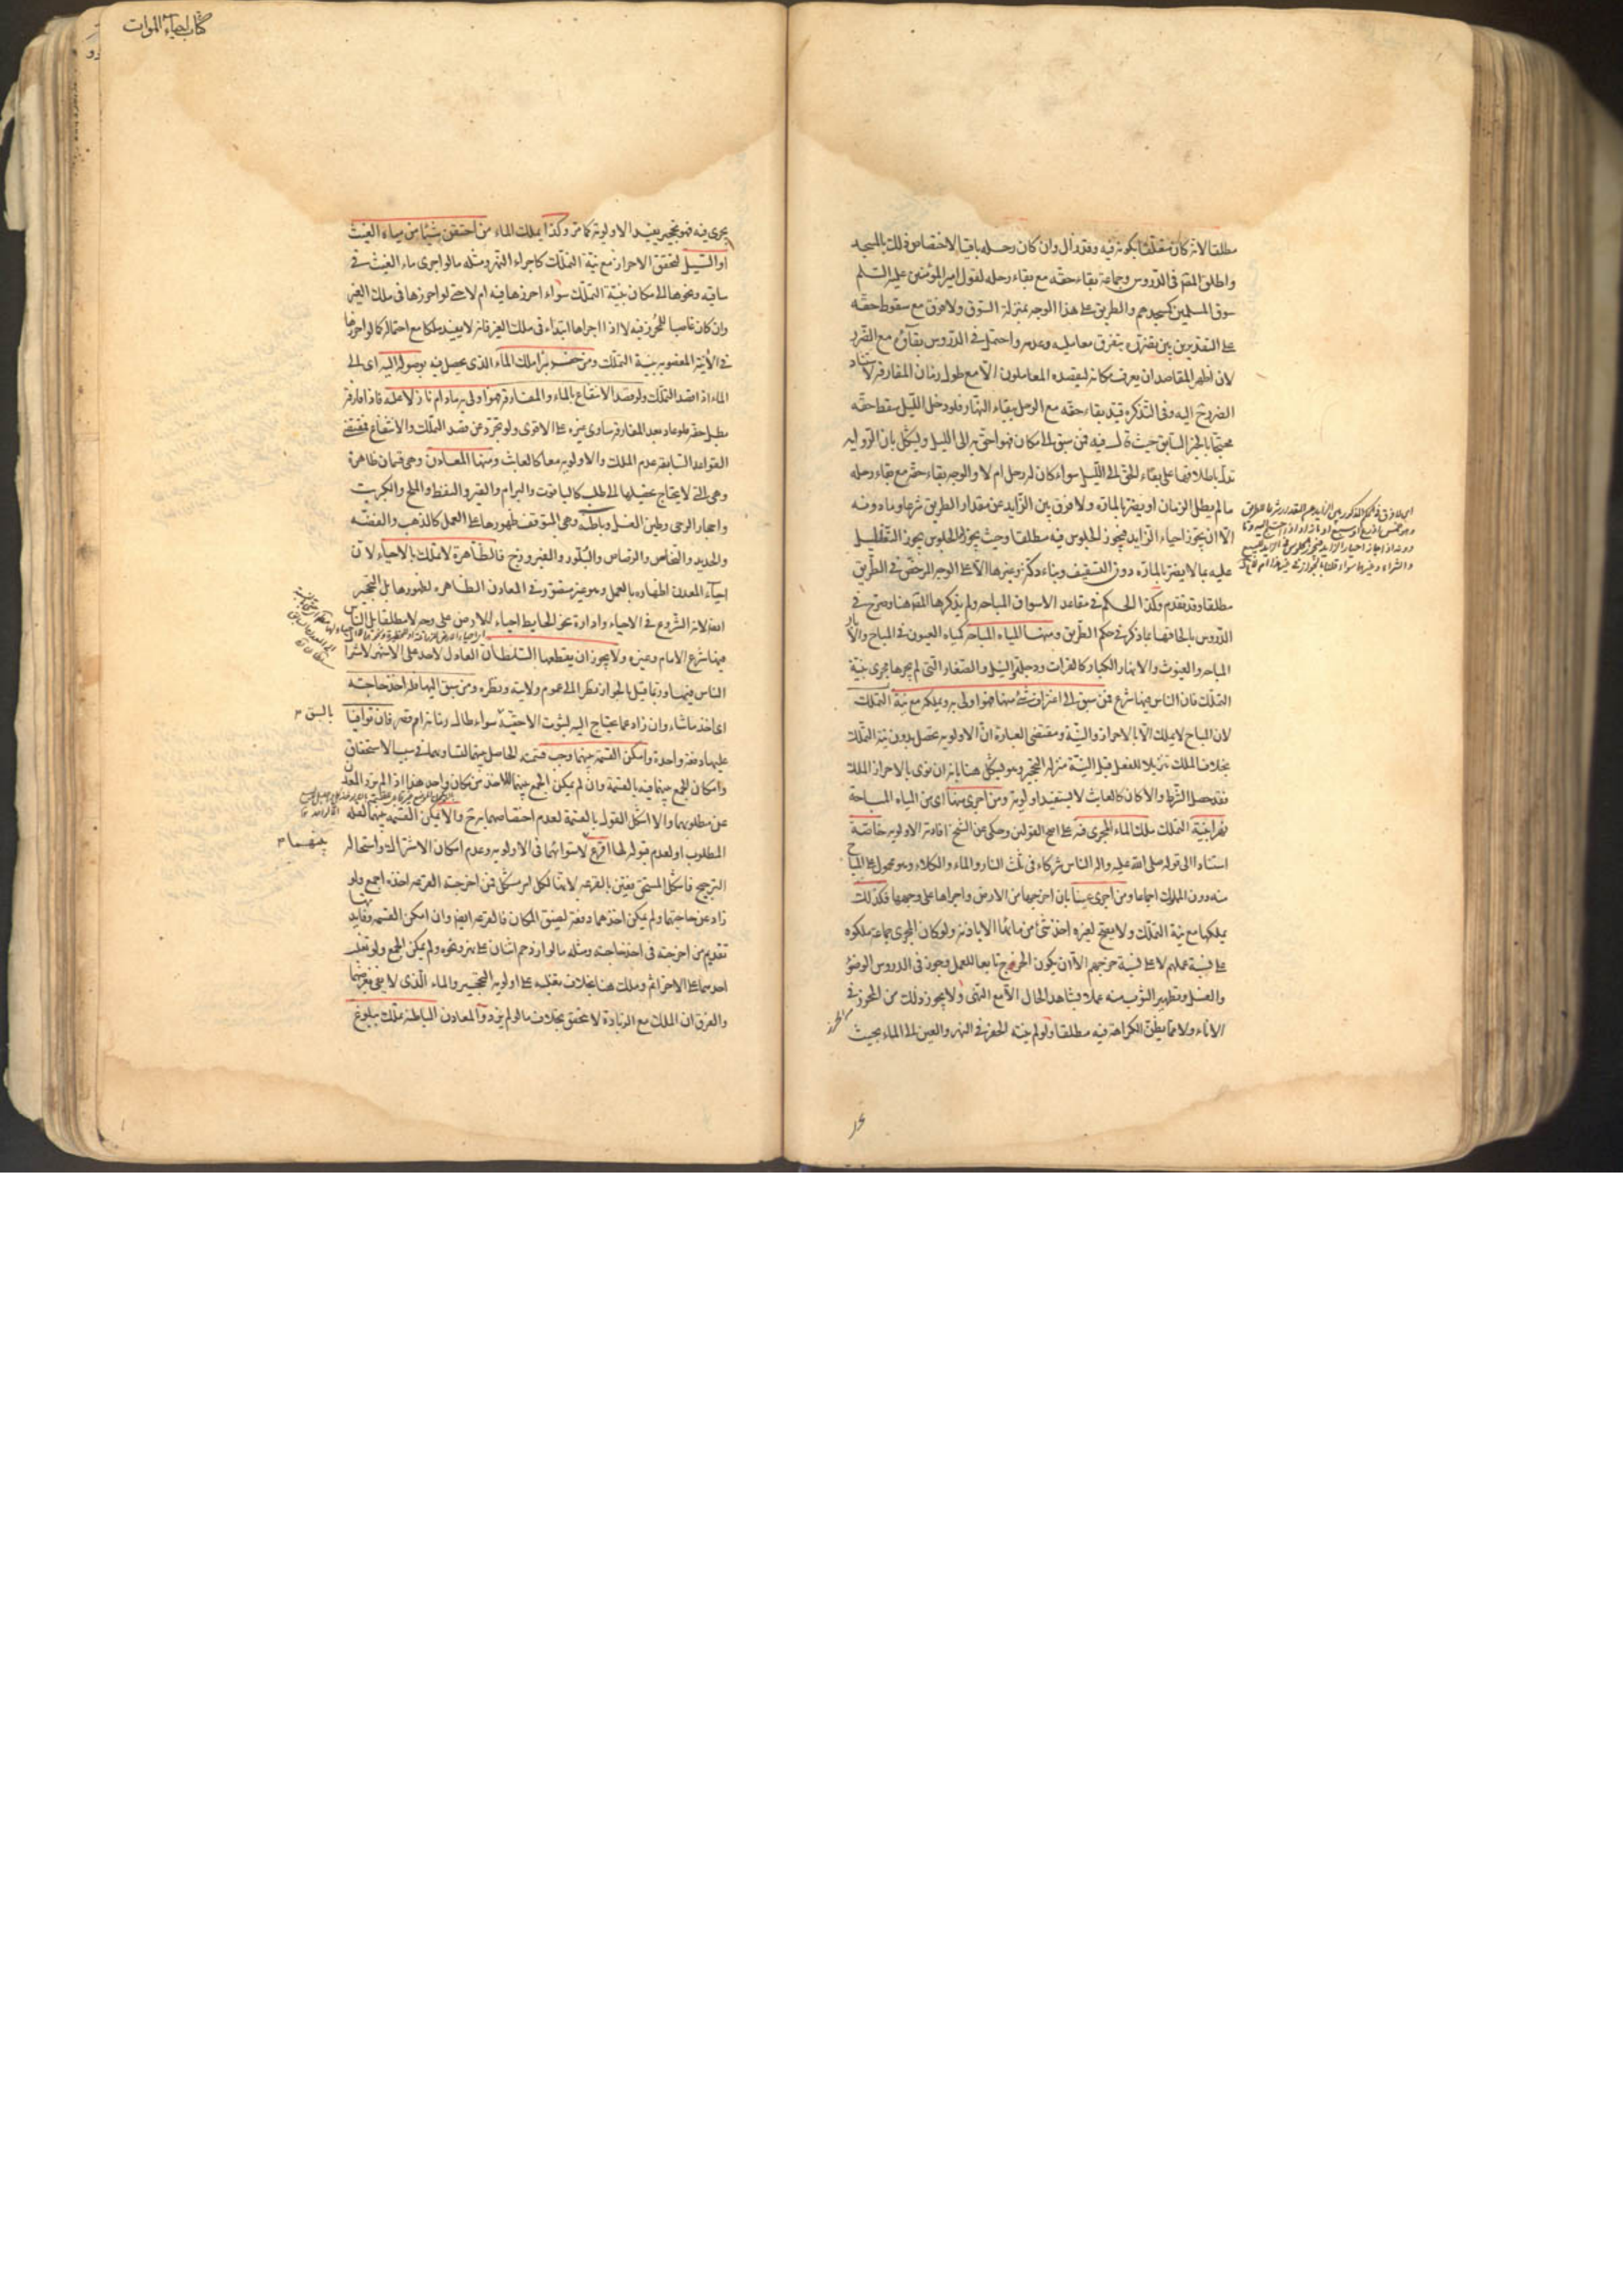 مطلقا لانه كان متعلقا بكونه فيه وقد زال وان كان رحله باقيا لاختصاص ذلك بالمسجد
واطلق المصنف في الدروس وجماعة بقاء حقه مع بقاء رحله لقول امير المؤمنين عليه السلم
سوق المسلمين كمسجدهم والطريق على هذا الوجه بمنزلة السوق ولا فرق مع سقوط حقه
على التقديرين بين تضرره بتفرق معامليه وعدمه واحتمل في الدروس بقاؤه مع الضرر
لان اظهر المقاصد ان يعرف مكانه ليقصده المعاملون الا مع طول زمان المفارقة لاستناد
الضرر ح اليه وفي التذكرة قيد بقاء حقه مع الرحل ببقاء النهار فلو دخل الليل سقط حقه
محتجا بالخبر السابق حيث قال فيه فمن سبق الى مكان فهو احق به الى الليل ويشكل بان الرواية
تدل باطلاقها على بقاء الحق الى الليل سواء كان له رحل ام لا والوجه بقاء حقه مع بقاء رحله
ما لم يطل الزمان او يضر بالمارة ولا فرق بين الزايد عن مقدار الطريق شرعا وما دونه
الا ان يجوز احياء الزايد فيجوز الجلوس فيه مطلقا وحيث يجوز الجلوس يجوز التظليل
عليه بما لا يضر بالمارة دون التسقيف وبناء دكة وغيرها الا على الوجه المرخص في الطريق
مطلقا وقد تقدم وكذا الحكم في مقاعد الاسواق المباحة ولم يذكرها المصنف هنا وصرح في
الدروس بالحاقها بما ذكر في حكم الطريق ومنها المياه المباحة كمياه العيون في المباح والابار
المباحة والغيوث والانهار الكبار كالفرات ودجلة والنيل والصغار التي لم يجرها مجر بنية
التملك فان الناس فيها شرع فمن سبق الى اغتراف شئ منها فهو اولى به ويملكه مع نية التملك
لان المباح لا يملك الا بالاحراز والنية ومقتضى العبارة ان الاولوية تحصل بدون نية التملك
بخلاف الملك تنزيلا للفعل قبل النية منزلة التحجير وهو يشكل هنا بانه ان نوى بالاحراز الملك
فقد حصل الشرط والا كان كالعابث لا يستفيد اولوية ومن اجرى منها اى من المياه المباحة
نهرا بنية التملك ملك الماء المجرى فيه على اصح القولين وحكى عن الشيخ افادته الاولوية خاصة
استنادا الى قوله صلى الله عليه واله الناس شركاء في ثلث النار والماء والكلاء وهو محمول على المباح
منه دون المملوك اجماعا ومن اجرى عينا بان اخرجها من الارض واجراها على وجهها فكذلك
يملكها مع نية التملك ولا يصح لغيره اخذ شئ من مائها الا باذنه ولو كان المجرى جماعة ملكوه
على نسبة عملهم لا على نسبة خرجهم الا ان يكون الخرج تابعا للعمل وجوز في الدروس الوضوء
والغسل وتطهير الثوب منه عملا بشاهد الحال الا مع النهى ولا يجوز ذلك من المحرز في
الاناء ولا مما يظن الكراهة فيه مطلقا ولو لم ينته الحفر في النهر والعين الى الماء بحيث
كتاب احياء الموات
يجرى فيه فهو تحجير يفيد الاولوية كما مر وكذا يملك الماء من احتقن شيئا من مياه الغيث
او السيل لتحقق الاحراز مع نية التملك كاجراء النهر ومثله ما لو اجرى ماء الغيث في
ساقية ونحوها الى مكان بنية التملك سواء احرزها فيه ام لا حتى لو احرزها في ملك الغير
وان كان غاصبا للمحرز فيه لا اذا اجراها ابتداء في ملك الغير فانه لا يفيد ملكا مع احتماله كما لو احرزها
في الآنية المغصوبة بنية التملك ومن حفر بئرا ملك الماء الذي يحصل فيه بوصوله اليه اى الى
الماء اذا قصد التملك ولو قصد الانتفاع بالماء والمفارقة فهو اولى به ما دام نازلا عليه فاذا فارقه
بطل حقه فلو عاد بعد المفارقة ساوى غيره على الاقوى ولو تجرد عن قصد التملك والانتفاع فمقتضى
القواعد السابقة عدم الملك والاولوية معا كالعابث ومنها المعادن وهي قسمان ظاهرة
وهي التي لا يحتاج تحصيلها الى طلب كالياقوت والبرام والقير والنفط والملح والكبريت
واحجار الرحى وطين الغسل وباطنة وهي المتوقف ظهورها على العمل كالذهب والفضة
والحديد والنحاس والرصاص والبلور والفيروزج فالظاهرة لا تملك بالاحياء لان
احياء المعدن اظهاره بالعمل وهو غير متصور في المعادن الظاهرة لظهورها بل التحجير
ايضا لانه الشروع في الاحياء وادارة نحو الحايط احياء للارض على وجه لا مطلقا بل الناس
فيها شرع الامام وغيره ولا يجوز ان يقتطعها السلطان العادل لاحد على الاشهر لاشتراك
الناس فيها وربما قيل بالجواز نظرا الى عموم ولايته ونظره ومن سبق اليها فله اخذ حاجته
اى اخذ ما شاء وان زاد عما يحتاج اليه لثبوت الاحقية بالسبق سواء طال زمانه ام قصر فان توافيا
عليها دفعة واحدة وامكن القسمة بينهما وجب قسمة الحاصل بينهما لتساويهما في سبب الاستحقاق
وامكان الجمع بينهما فيه بالقسمة وان لم يمكن الجمع بينهما للاخذ من مكان واحد هذا اذا لم يزد المعدن
عن مطلوبهما والا اشكل القول بالقسمة لعدم اختصاصهما به ح والا يمكن القسمة بينهما لقلة
المطلوب او لعدم قبوله لها اقرع بينهما لاستوائهما في الاولوية وعدم امكان الاشتراك واستحالة
الترجيح فاشكل المستحق فعين بالقرعة لانها لكل امر مشكل فمن اخرجته القرعة اخذه اجمع ولو
زاد عن حاجتهما ولم يمكن اخذهما دفعة لضيق المكان فالقرعة ايضا وان امكن القسمة وفايدتها
تقديم من اخرجته في اخذ حاجته ومثله ما لو ازدحم اثنان على نهر ونحوه ولم يمكن الجمع ولو تغلب
احدهما على الاخر اثم وملك هنا بخلاف تغلبه على اولوية التحجير والماء الذي لا يفي بغرضهما
والفرق ان الملك مع الزيادة لا يتحقق بخلاف ما لو لم يزد والمعادن الباطنة تملك ببلوغ